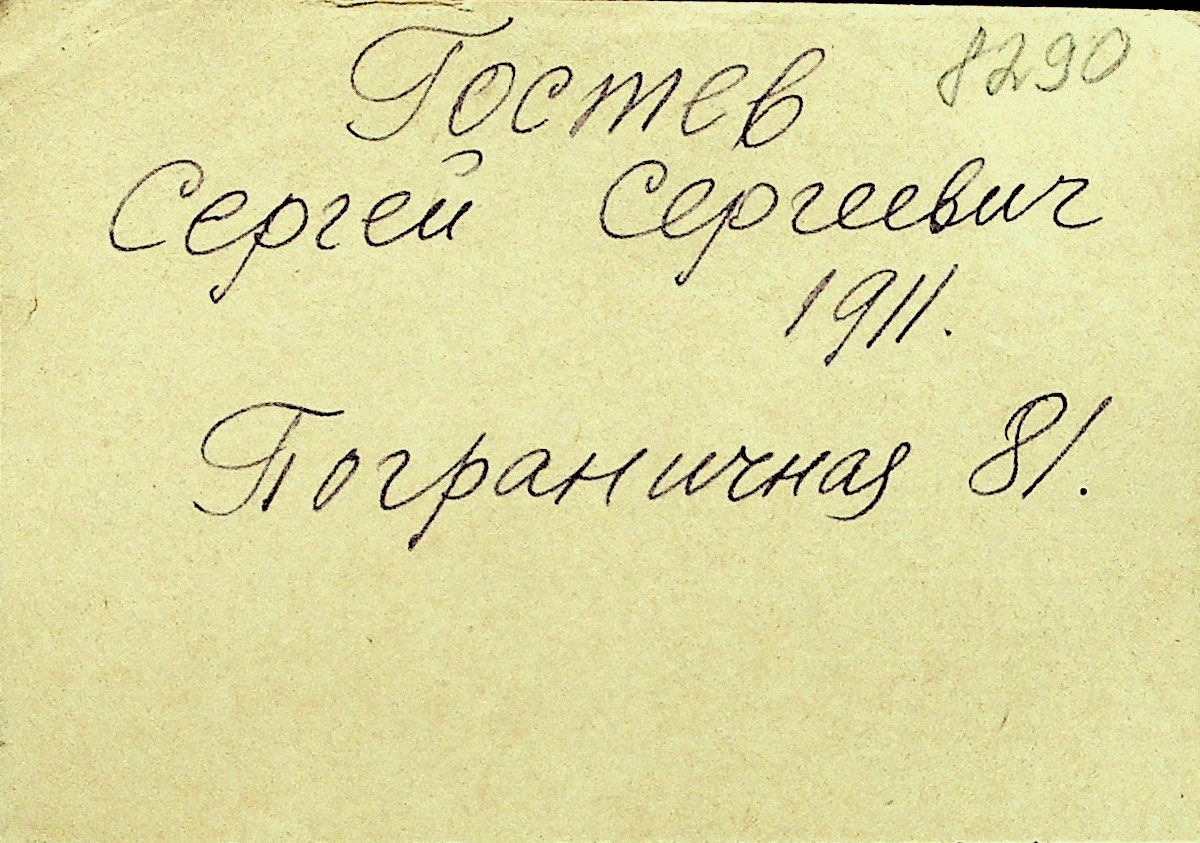 8290
Гостев
Сергей Сергеевич
1911.
Пограничная 81.